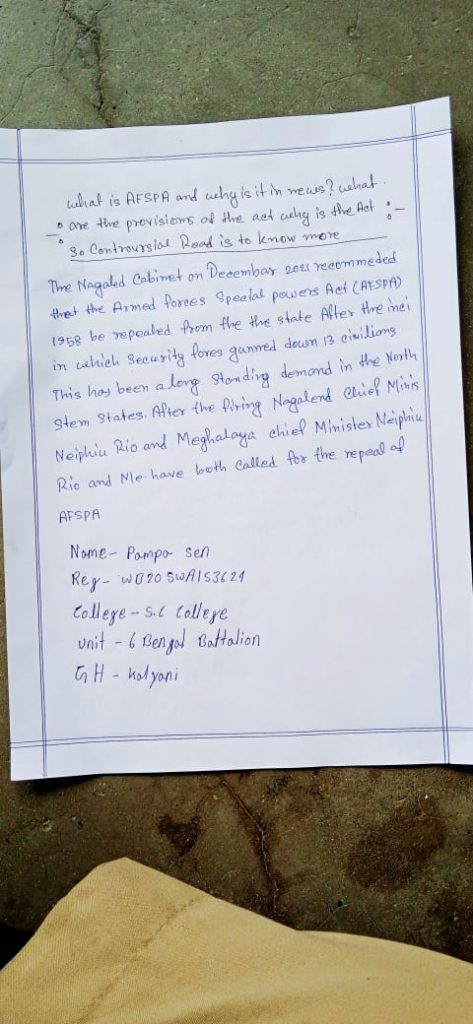 what is AFSPA and why is it in news? what
are the provisions of the act why is the Act :-
So Controursial Read is to know more
The Nagaled Cabinet on Decembar 2021 recommeded
that the Armed forces Speeial powers Act (AFSPA)
1958 be repealed from the the state After the inci
in which Security fores gunned down 13 civilions
This has been a long Standing demand in the North
Stem States. After the firing Nagalend Chief Minis
Neiphiu Rio and Meghalaya chief Minister Neiphiu
Rio and Me have both Called for the repeal of
AFSPA
Name- Pampa Sen
Reg- WB20SWA153621
College - S.C College
Unit - 6 Bengal Battalion
GH - Kalyani